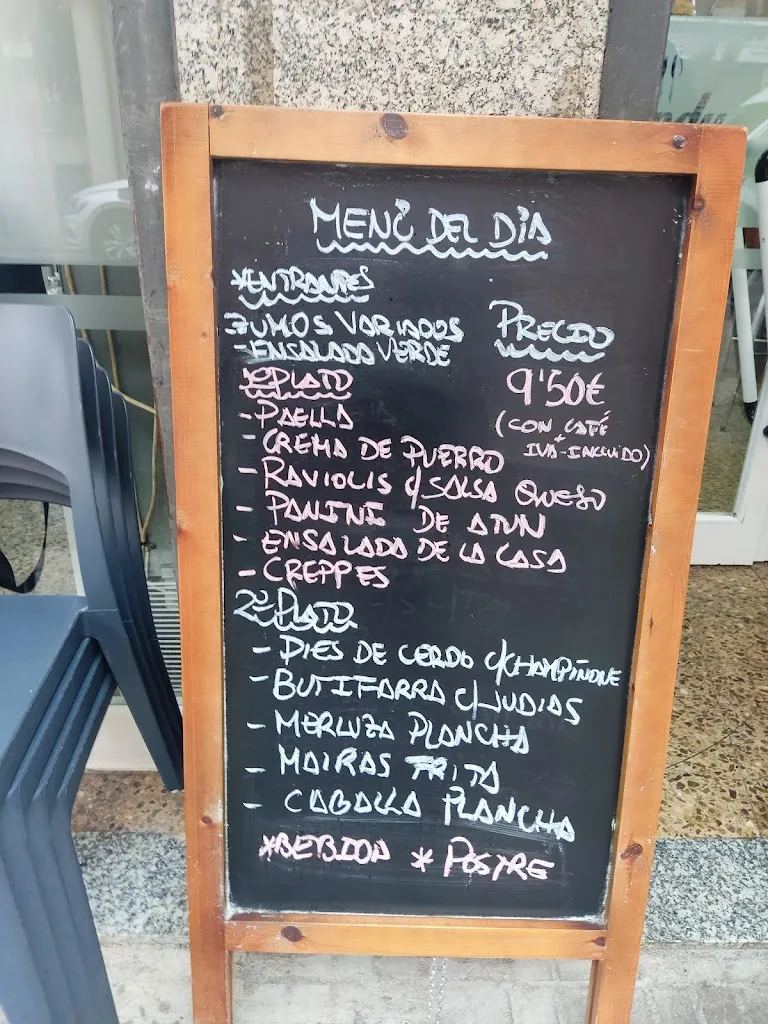 MENÚ DEL DÍA
*ENTRANTES
ZUMOS VARIADOS
-ENSALADA VERDE
PRECIO
9'50€
(CON CAFÉ
+
IVA-INCLUIDO)
1º PLATO
- PAELLA
- CREMA DE PUERRO
- RAVIOLIS C/SALSA QUESO
- PANINI DE ATUN
- ENSALADA DE LA CASA
- CREPPES
2º PLATO
- PIES DE CERDO C/CHAMPIÑONE
- BUTIFARRA C/JUDIAS
- MERLUZA PLANCHA
- MAIRAS FRITA
- CABALLA PLANCHA
*BEBIDA * POSTRE